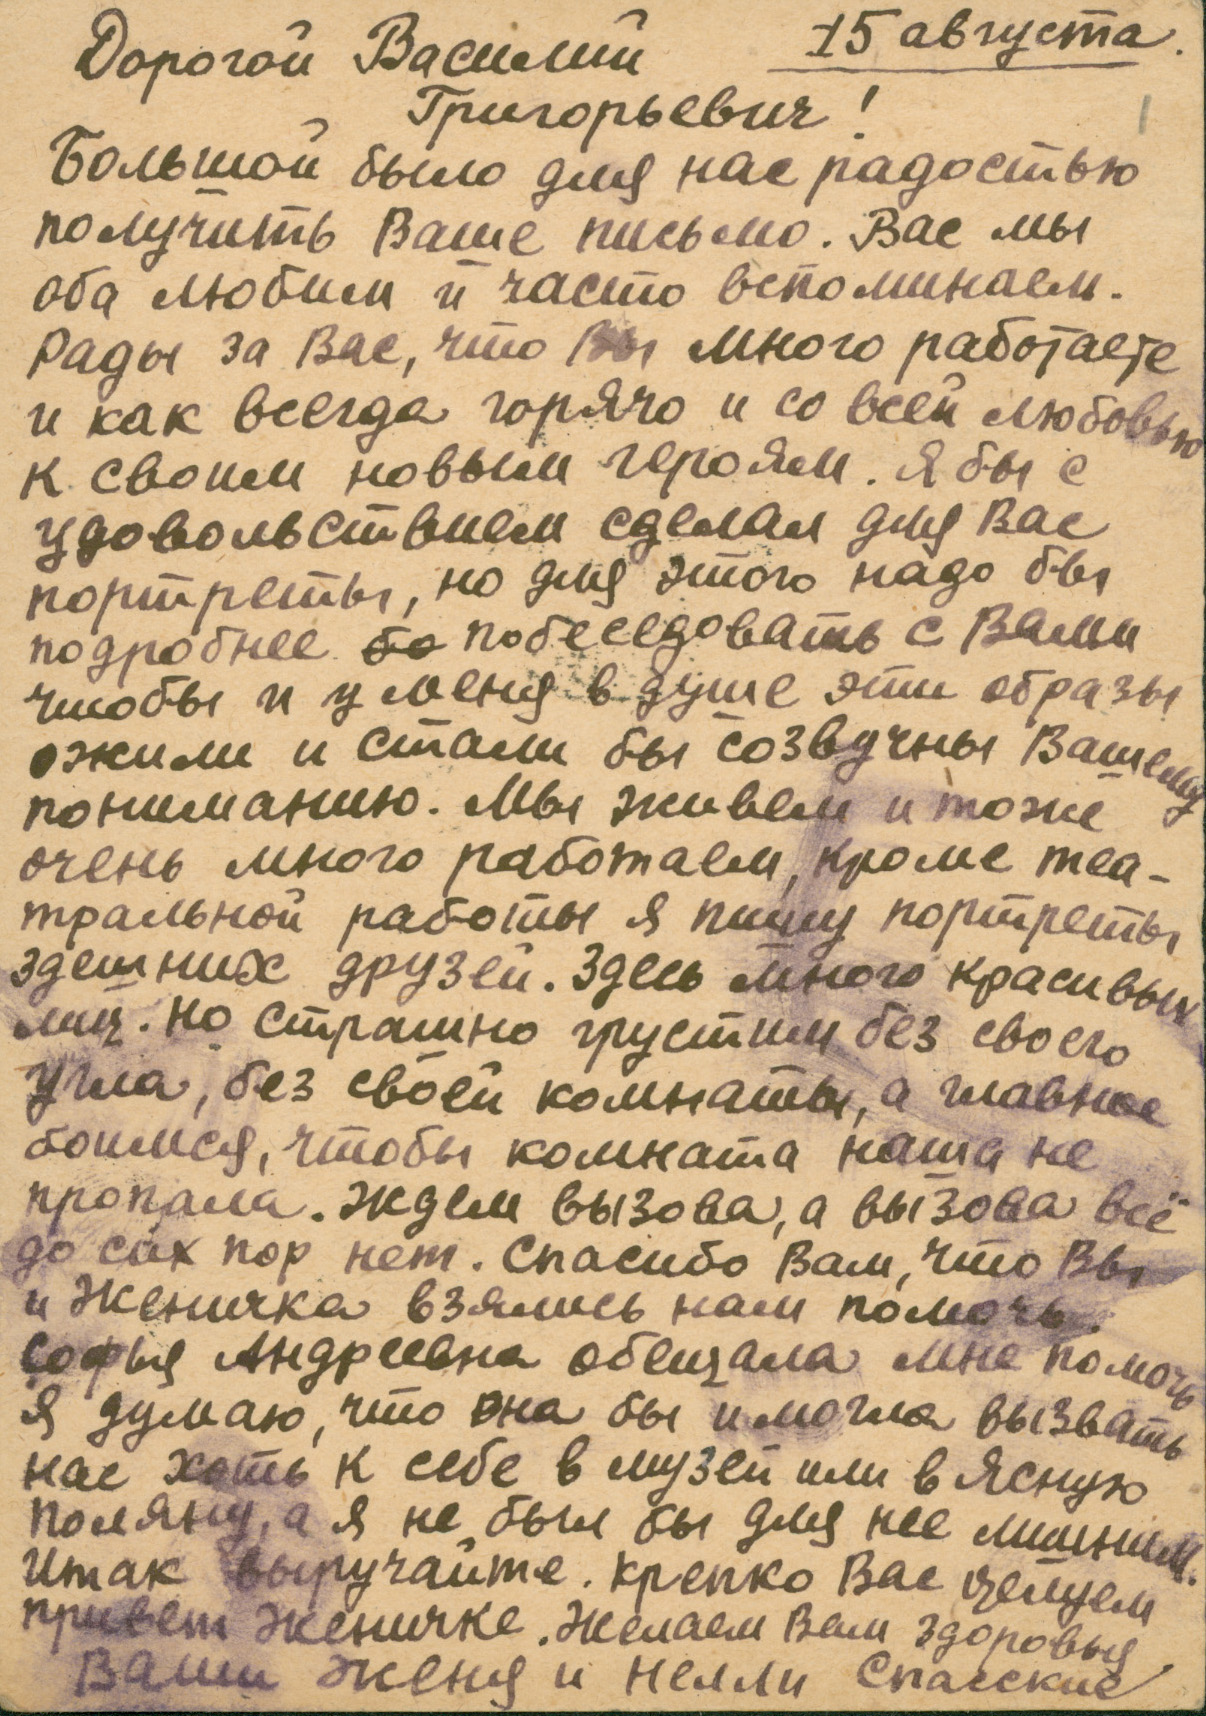 15 августа.
Дорогой Василий
Григорьевич!
Большой было для нас радостью
получить Ваше письмо. Вас мы
оба любим и часто вспоминаем.
Рады за Вас, что Вы много работаете
и как всегда горячо и со всей любовью
к своим новым героям. Я бы с
удовольствием сделал для Вас
портреты, но для этого надо бы
подробнее бо побеседовать с Вами
чтобы и у меня в душе эти образы
ожили и стали бы созвучны Вашему
пониманию. Мы живем и тоже
очень много работаем, кроме теа-
тральной работы я пишу портреты
здешних друзей. Здесь много красивых
лиц. Но страшно грустим без своего
угла, без своей комнаты, а главное
боимся, чтобы комната наша не
пропала. Ждем вызова, а вызова всё
до сих пор нет. Спасибо Вам, что Вы
и Женичка взялись нам помочь.
Софья Андреевна обещала мне помочь
Я думаю, что она бы и могла вызвать
нас хоть к себе в музей или в Ясную
Поляну, а я не был бы для нее лишним.
Итак выручайте. Крепко Вас целуем
привет Женичке. Желаем Вам здоровья
Ваши Женя и Нелли Спасские